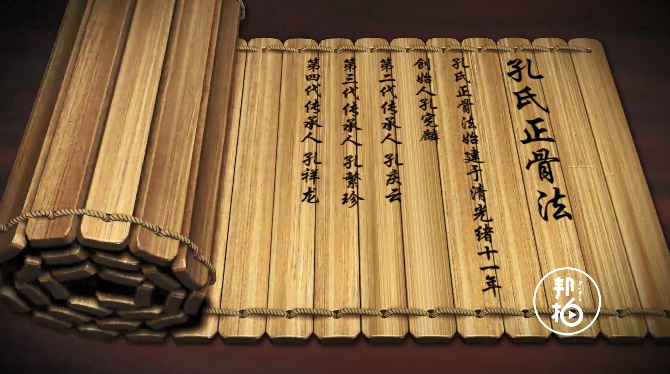 孔氏正骨法
孔氏正骨法始建于清光绪十一年
创始人孔宪麟
第二代传承人 孔庆云
第三代传承人 孔繁珍
第四代传承人 孔祥龙
邦拍